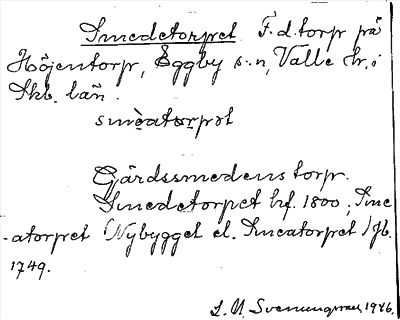 Smedetorpet F.d. torp på
Höjentorp, Eggby s:n, Valle hr. i
Skb. län.
smèatorpət
Gårdssmedens torp.
Smedetorpet hf. 1800; Sme
-atorpet (Nybygget el. Smeatorpet) Jb.
1749.
S. A. Svenungsson 1946.